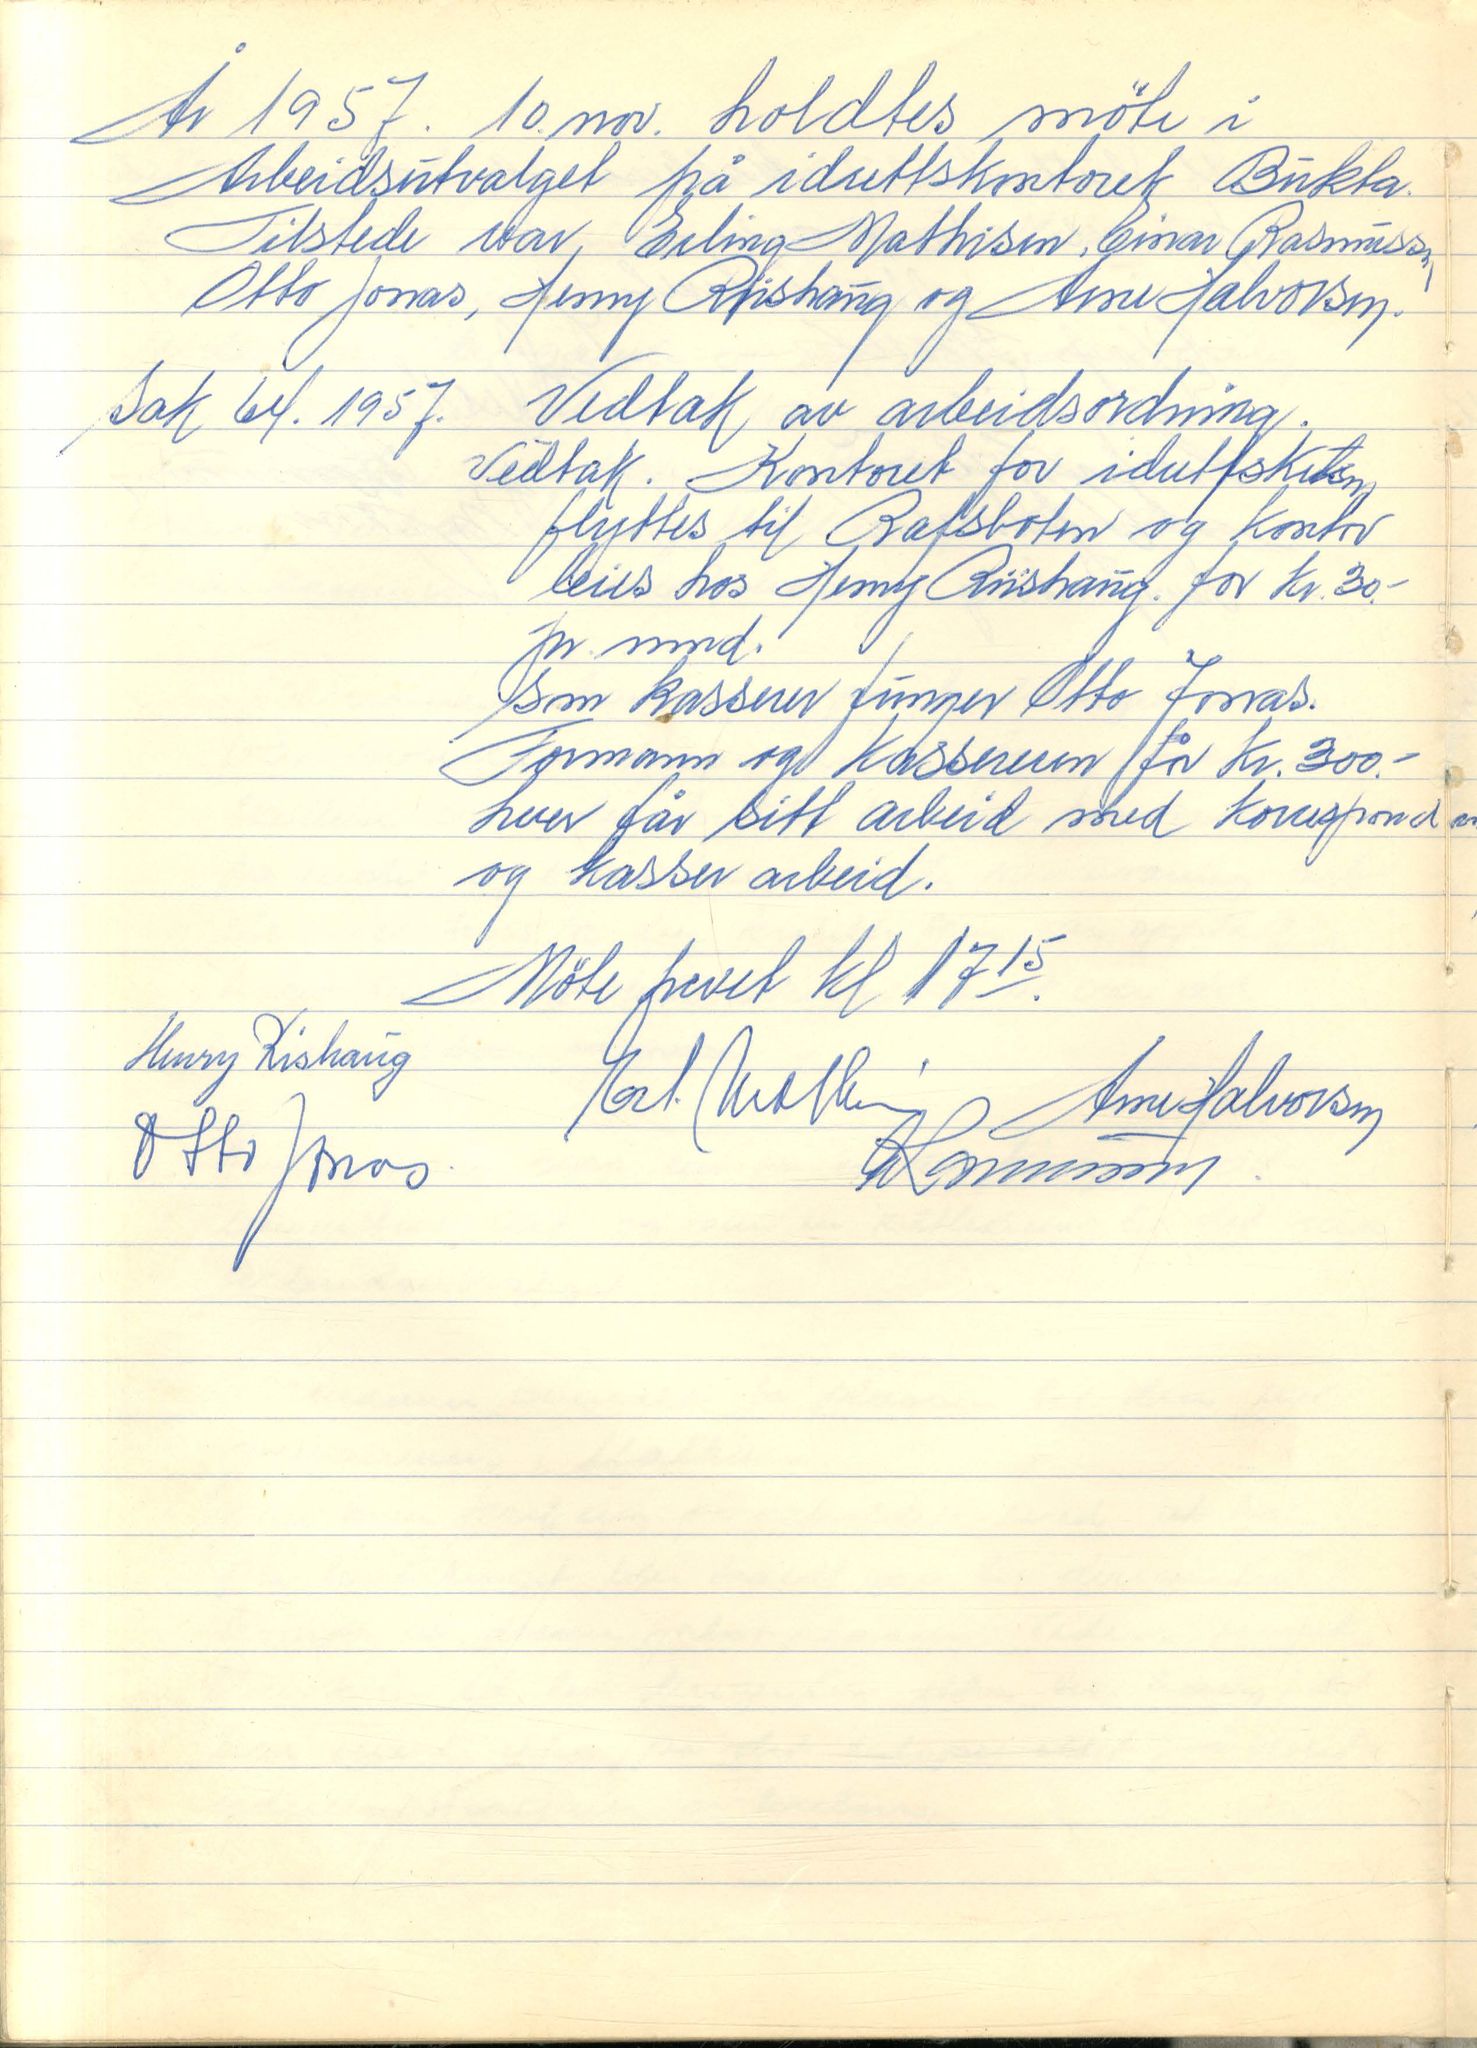 År 1957. 10. nov. holdtes möte i
Arbeidsutvalget på idrettskontoret Bukta.
Tilstede var, Erling Mathisen, Einar Rasmussen,
Otto Jonas, Henry Riishaug og Arne Halvorsen.
Sak 64. 1957. Vedtak av arbeidsordning.
Vedtak. Kontoret for idrettskretsen
flyttes til Rafsbotn og kontor
leies hos Henry Riishaug. for kr. 30.-
pr. mnd.
Som kasserer funger Otto Jonas.
Formann og kassereren får kr. 300.-
hver får sitt arbeid med
og kasser arbeid.
Möte hevet kl 17 15.
Henry Rishaug
Arne Halvorsen
Otto Jonas.